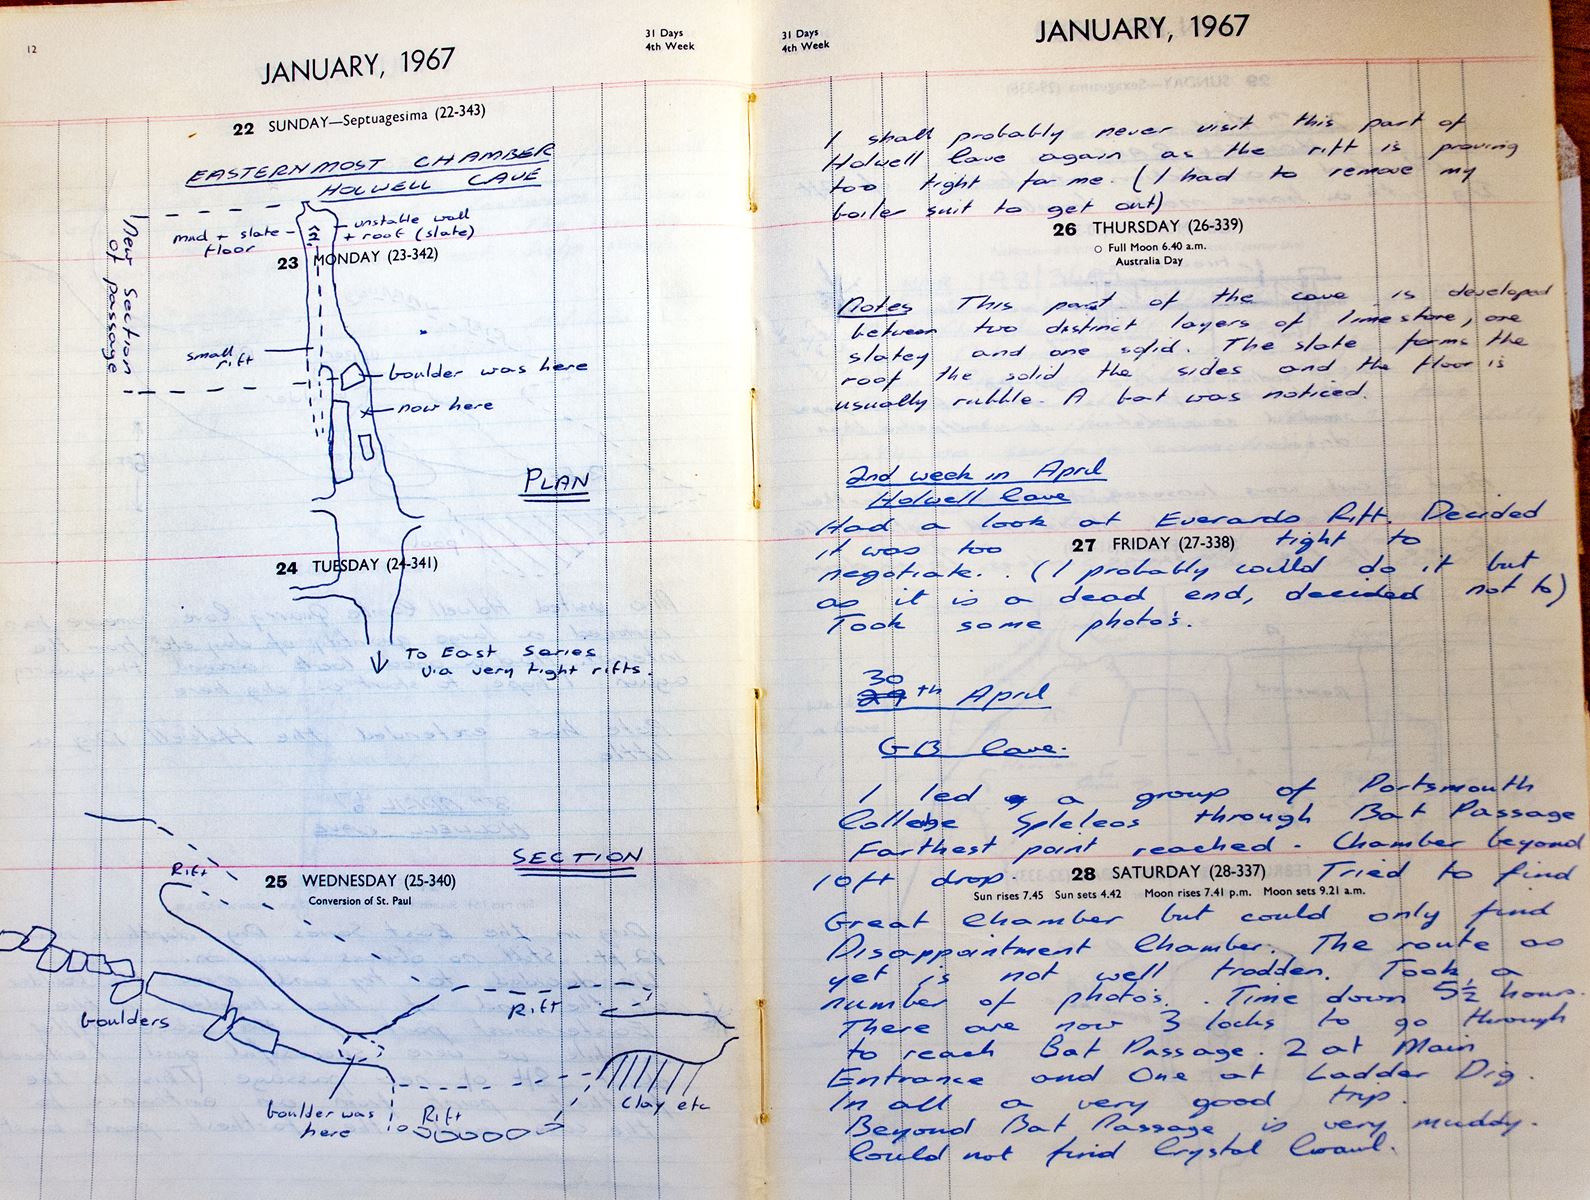 12
JANUARY, 1967
31 Days
4th Week
22 SUNDAY—Septuagesima (22-343)
EASTERNMOST CHAMBER
HOLWELL CAVE
New section
of passage
mud + slate
floor
unstable wall
+ roof (slate)
23 MONDAY (23-342)
small
rift
boulder was here
now here
PLAN
24 TUESDAY (24-341)
To East Series
via very tight rifts.
SECTION
Rift
25 WEDNESDAY (25-340)
Conversion of St. Paul
boulders
Rift
boulder was
here
Rift
Clay etc
31 Days
4th Week
JANUARY, 1967
I shall probably never visit this part of
Holwell Cave again as the rift is proving
too tight for me. (I had to remove my
boiler suit to get out)
26 THURSDAY (26-339)
Full Moon 6.40 a.m.
Australia Day
Notes This part of the cave is developed
between two distinct layers of limestone, one
slatey and one solid. The slate forms the
roof the solid the sides and the floor is
usually rubble. A bat was noticed.
2nd week in April
Holwell Cave
Had a look at Everards Rift. Decided
it was too tight to
27 FRIDAY (27-338)
negotiate. (I probably could do it but
as it is a dead end, decided not to)
Took some photo's.
30
29th April
GB Cave.
I led a group of Portsmouth
College Speleos through Bat Passage
Farthest point reached - Chamber beyond
10ft drop. Tried to find
28 SATURDAY (28-337)
Sun rises 7.45 Sun sets 4.42 Moon rises 7.41 p.m. Moon sets 9.21 a.m.
Great Chamber but could only find
Disappointment Chamber. The route as
yet is not well trodden. Took a
number of photo's. Time down 5½ hours.
There are now 3 locks to go through
to reach Bat Passage. 2 at Main
Entrance and One at Ladder Dig.
In all a very good trip.
Beyond Bat Passage is very muddy.
Could not find Crystal Crawl.